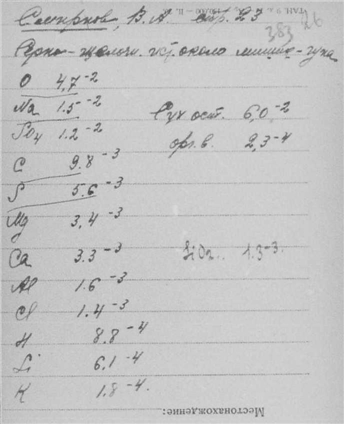 Смирнов, В. А стр. 23
383 26
Серно - щелочн. ист. около
О 4,7⁻²
Na 1.5⁻²
SO₄ 1.2⁻² Сух ост. 6,0⁻²
орг. в. 2,3⁻⁴
C 9.8⁻³
S 5.6⁻³
Mg 3,4⁻³
Ca 3.3⁻³ SiO₂. 1.3⁻³.
Al 1.6⁻³
Cl 1.4⁻³
H 8.8⁻⁴
Si 6,1⁻⁴
K 1.8⁻⁴.
Местонахождение: